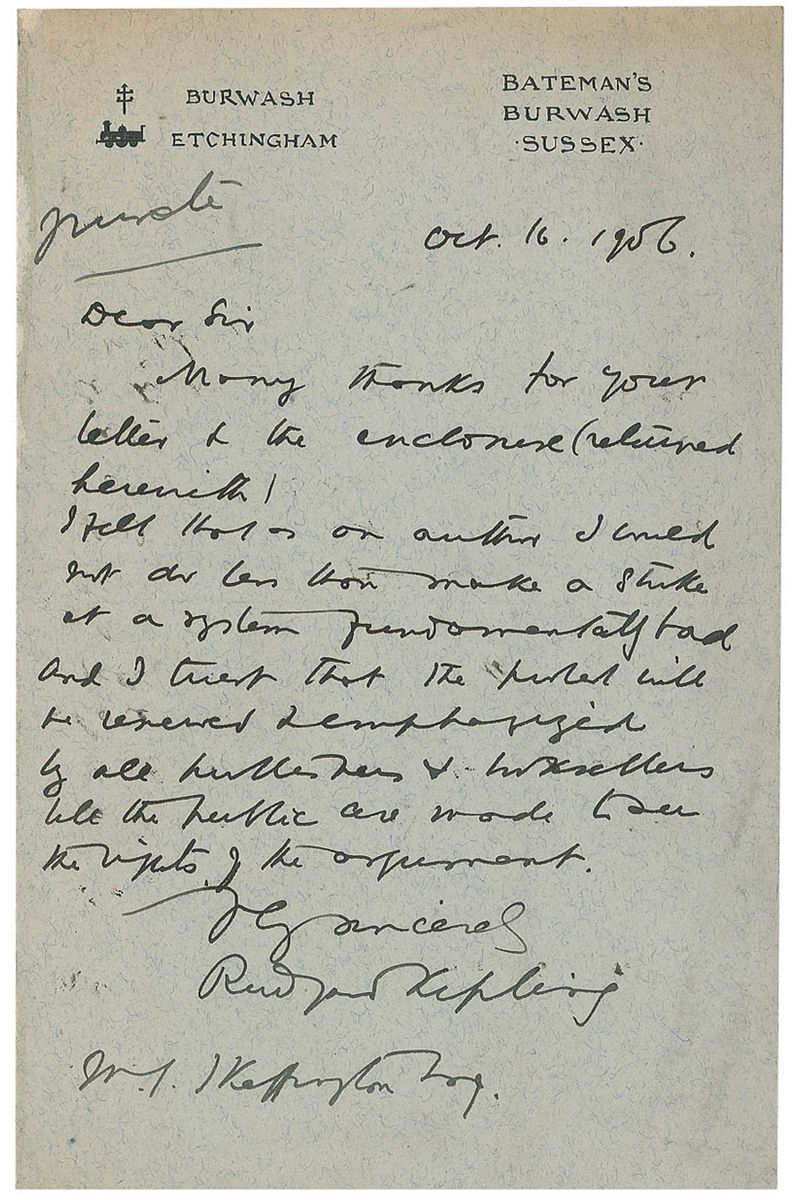 BURWASH
ETCHINGHAM
BATEMAN'S
BURWASH
·SUSSEX·
private
Oct. 16. 1906.
Dear Sir
Many thanks for your
letter & the enclosure (returned
herewith)
I felt that as an author I could
not do less than make a strike
at a system fundamentally bad
and I trust that the protest will
be renewed & emphasized
by all publishers & booksellers
till the public are made to see
the rights of the argument.
Very sincerely
Rudyard Kipling
W. S. Skeffington Esq.